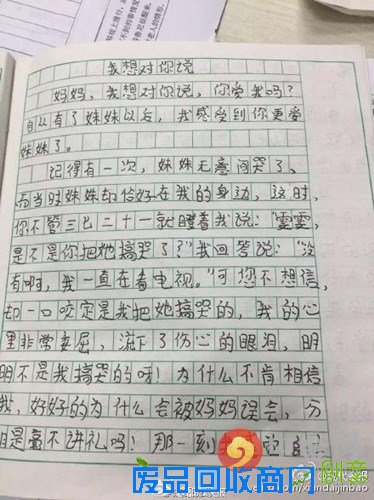 我想对你说
妈妈，我想对你说，你爱我吗？
自从有了妹妹以后，我感受到你更爱
妹妹了。
记得有一次，妹妹无意间哭了，
而当时妹妹却恰好在我的身边，这时，
你不管三七二十一就瞪着我说："雯雯，
是不是你把她搞哭了？"我回答说："没
有啊，我一直在看电视。"可您不想信，
却一口咬定是我把她搞哭的，我的心
里非常委屈，流下了伤心的眼泪，明
明不是我搞哭的呀！为什么不肯相信
我，好好的为什么会被妈妈误会，分
明是毫不讲礼吗！那一刻
废品回收商网
创意